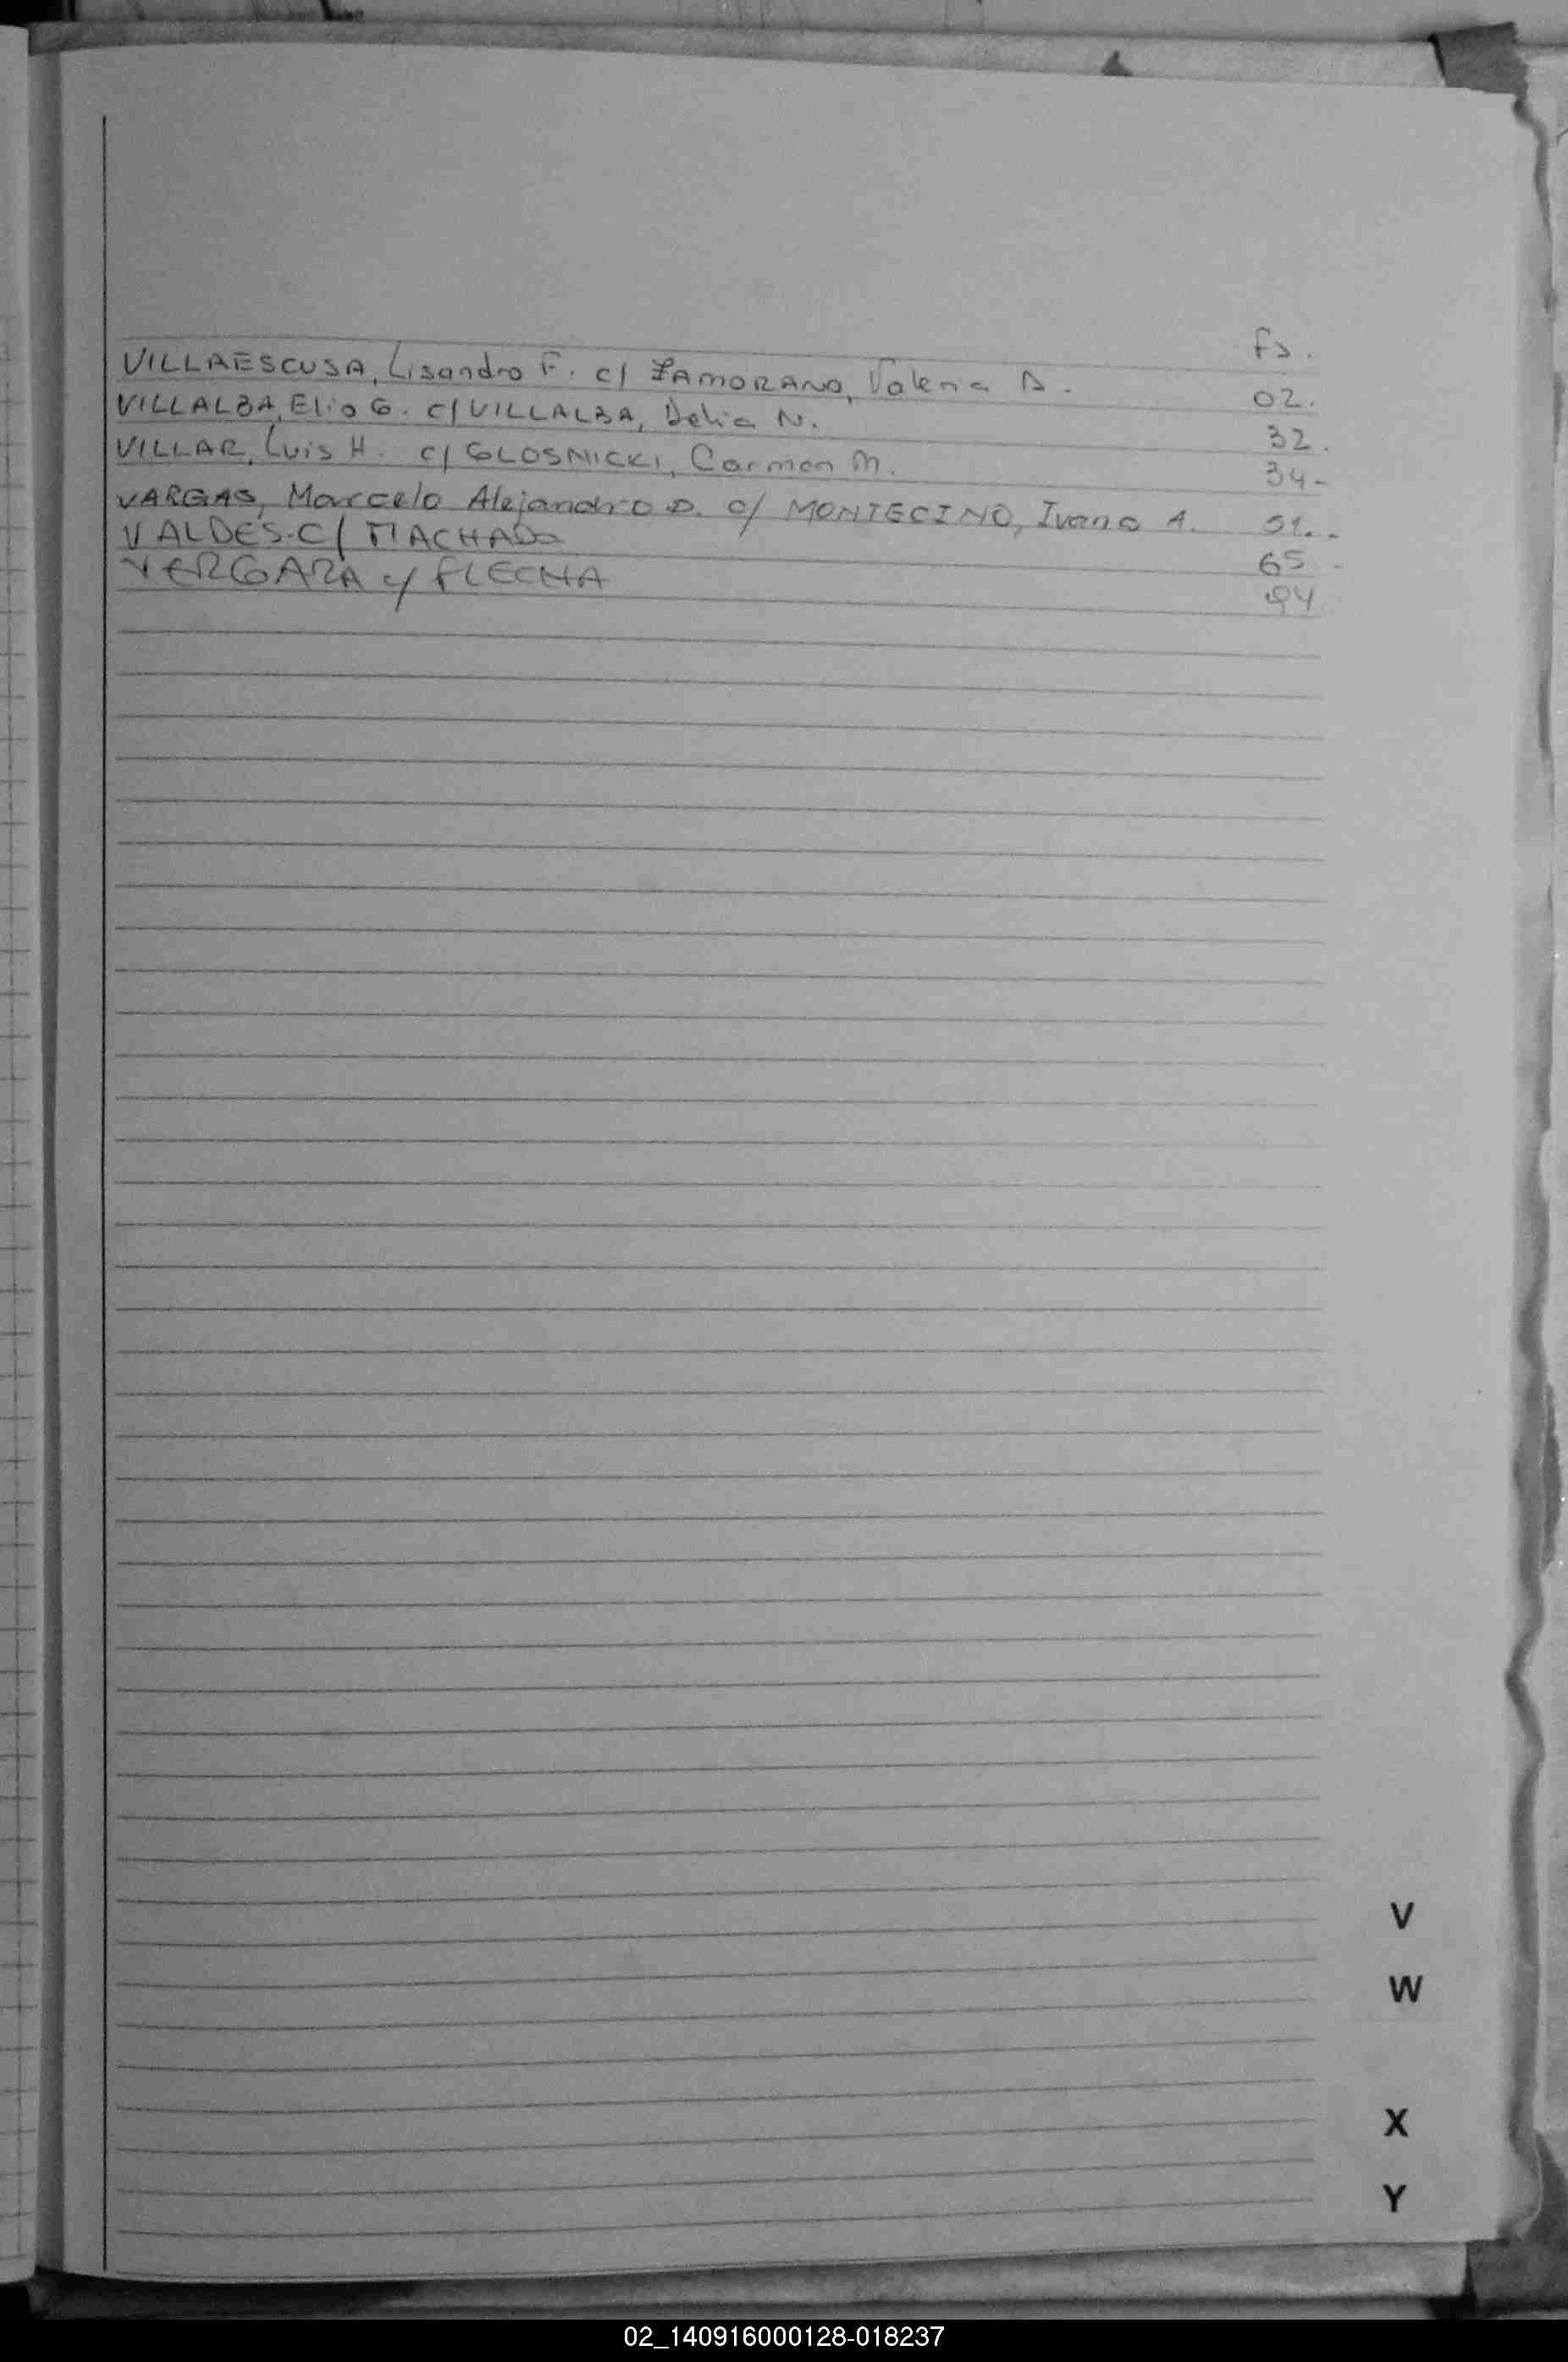 Fs.
VILLAESCUSA, Lisandro F. c/ ZAMORANO, Valeria D. 02.
VILLALBA, Elio G. c/ VILLALBA, Delia N. 32.
VILLAR, Luis H. c/ GLOSNICKI, Carmen M. 34-
VARGAS, Marcelo Alejandro D. c/ MONTECINO, Ivana A. 51..
VALDES. C/ MACHADO 65-
VERGARA c/ FLECHA 94
V
W
X
Y
02_140916000128-018237